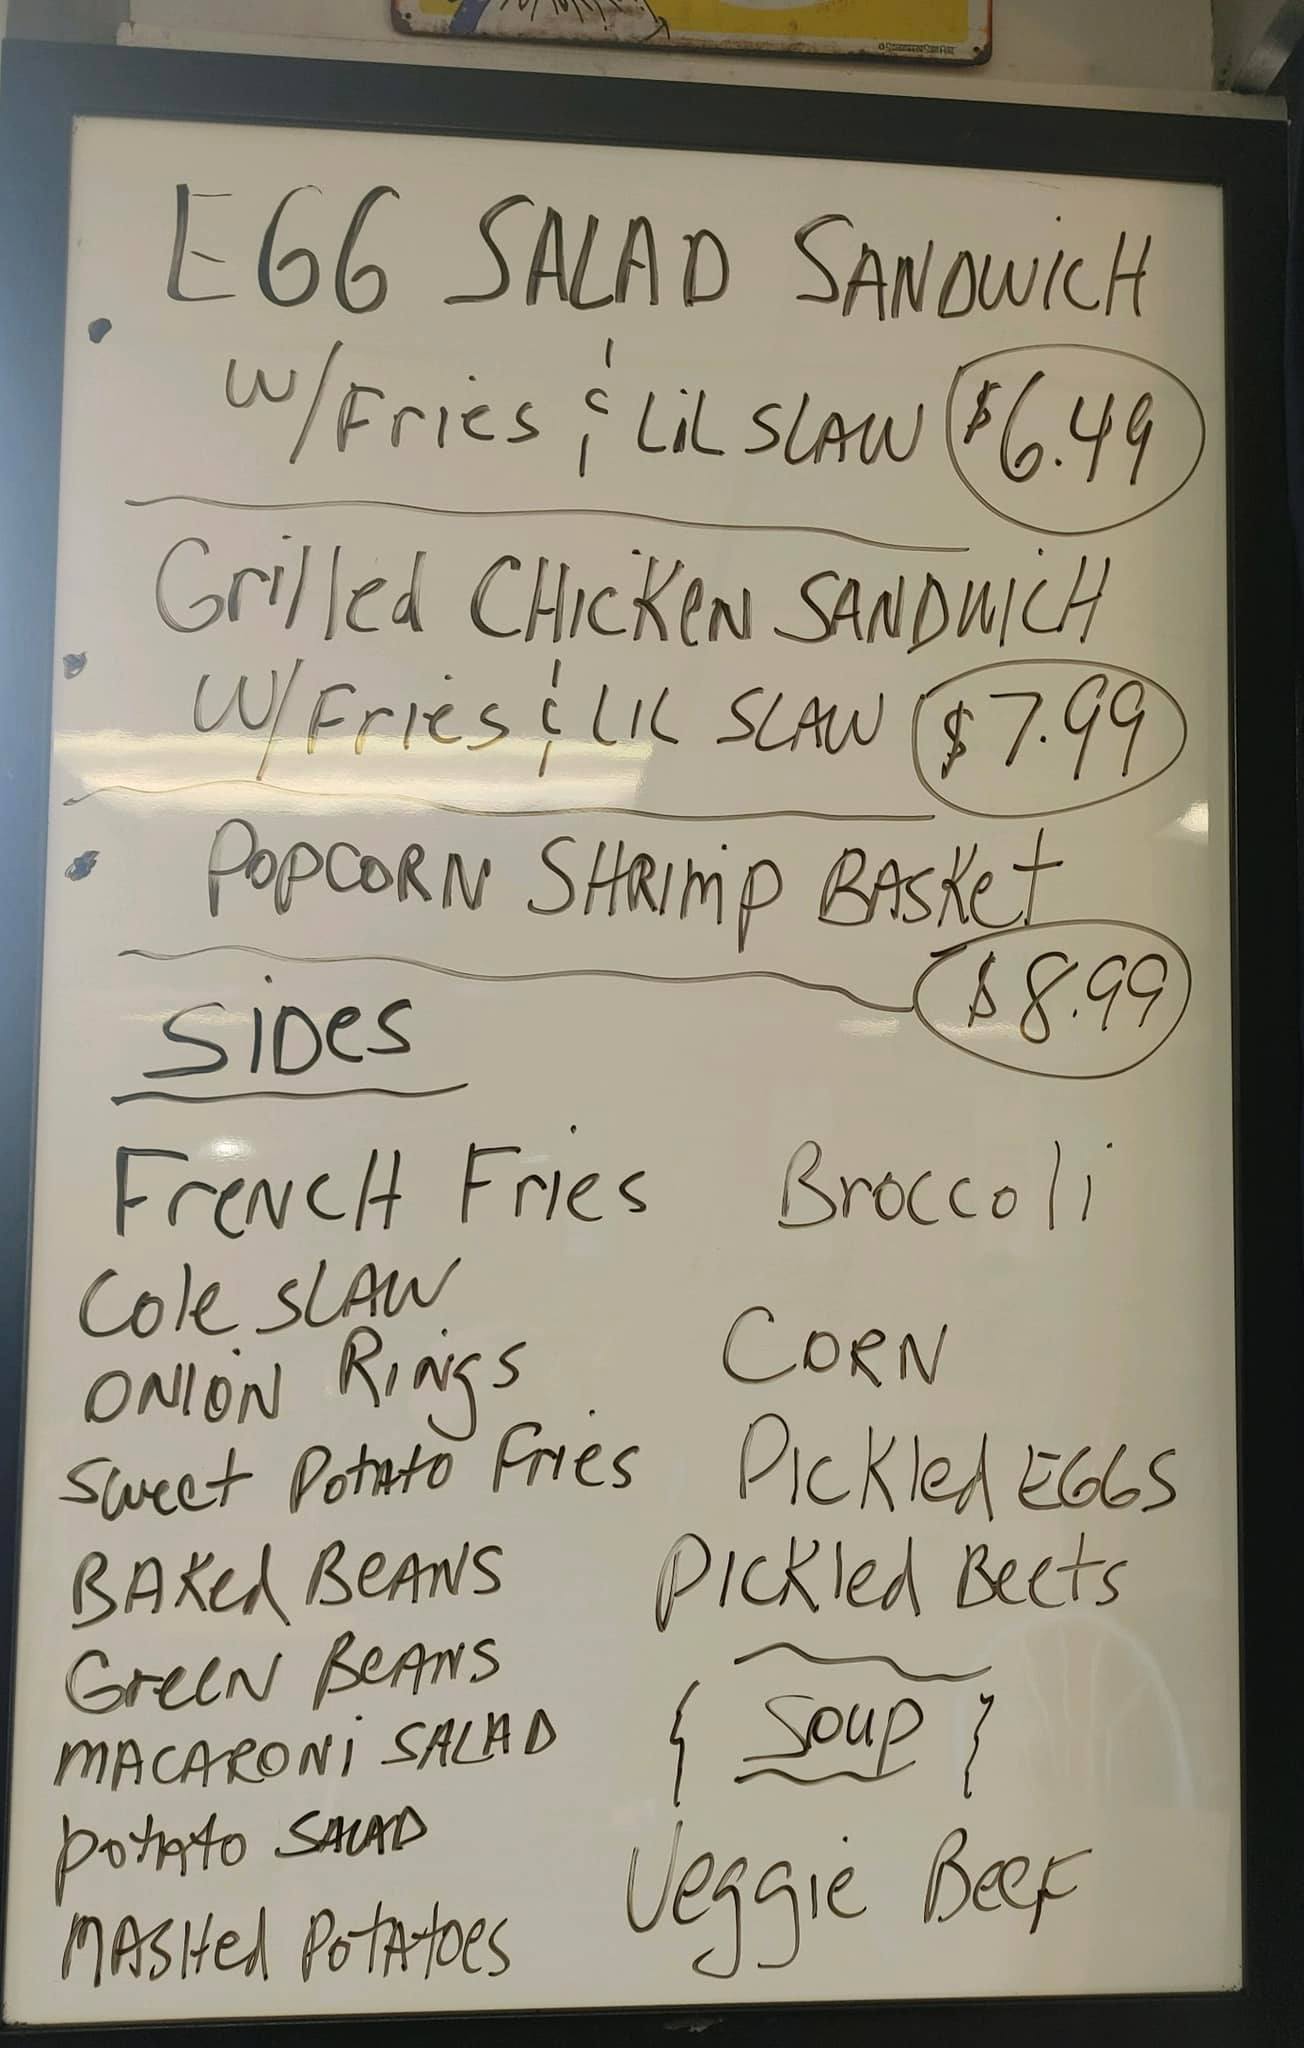 EGG SALAD SANDWICH
W/Fries & LiL SLAW $6.49
Grilled CHICKEN SANDWICH
W/Fries & LIL SLAW $7.99
POPCORN SHRIMP BASKet
$8.99
SIDes
FrENCH Fries
Cole SLAW
ONION RINgS
Sweet POTATO Fries
BAKed BeANS
GreeN BeANS
MACARONi SALAD
potato SALAD
MASHed POTATOES
Broccoli
CORN
PICKled EGGS
PICKled Beets
{ Soup }
Veggie BeeF